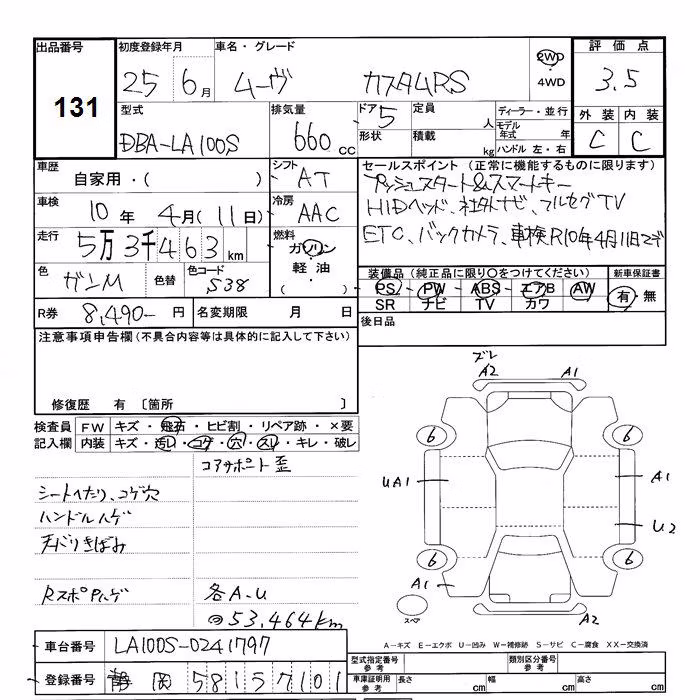 出品番号
131
初度登録年月
25年 6月
車名・グレード
ムーヴ カスタムRS
2WD
・4WD
評価点
3.5
外装 内装
C C
型式
DBA-LA100S
排気量
660 cc
ドア 5
形状
定員
人
積載
kg
ディーラー・並行
モデル年式 年
ハンドル 左・右
車歴
自家用・( )
車検
10年 4月(11日)
走行
5万3千463km
色
ガンM
色替
色コード
S38
R券 8,490- 円
名変期限 月 日
シフト
AT
冷房
AAC
燃料
ガソリン
軽油
( )
セールスポイント(正常に機能するものに限ります)
プッシュスタート&スマートキー
HIDヘッド、社外ナビ、フルセグTV
ETC、バックカメラ、車検R10年4月11日まで
装備品(純正品に限り○をつけてください)
PS・PW・ABS・エアB・AW
SR ナビ TV カワ
新車保証書
有・無
後日品
注意事項申告欄(不具合内容等は具体的に記入して下さい)
修復歴 有 〔箇所 〕
検査員記入欄
FW キズ・飛石・ヒビ割・リペア跡・×要
内装 キズ・汚レ・コゲ・穴・スレ・キレ・破レ
コアサポート歪
シートへたり、コゲ穴
ハンドルハゲ
天バリきばみ
RスポPハゲ
各A-U
53,464km
ズレ
A2 A1
6 6
UA1 A1
U2
6 6
A1
スペア
A2
A-キズ E-エクボ U-凹み W-補修跡 S-サビ C-腐食 XX-交換済
車台番号 LA100S-0241797
登録番号 静岡581 571 01
型式指定番号 参考
類別区分番号 参考
車庫証明用 参考
長さ cm 幅 cm 高さ cm